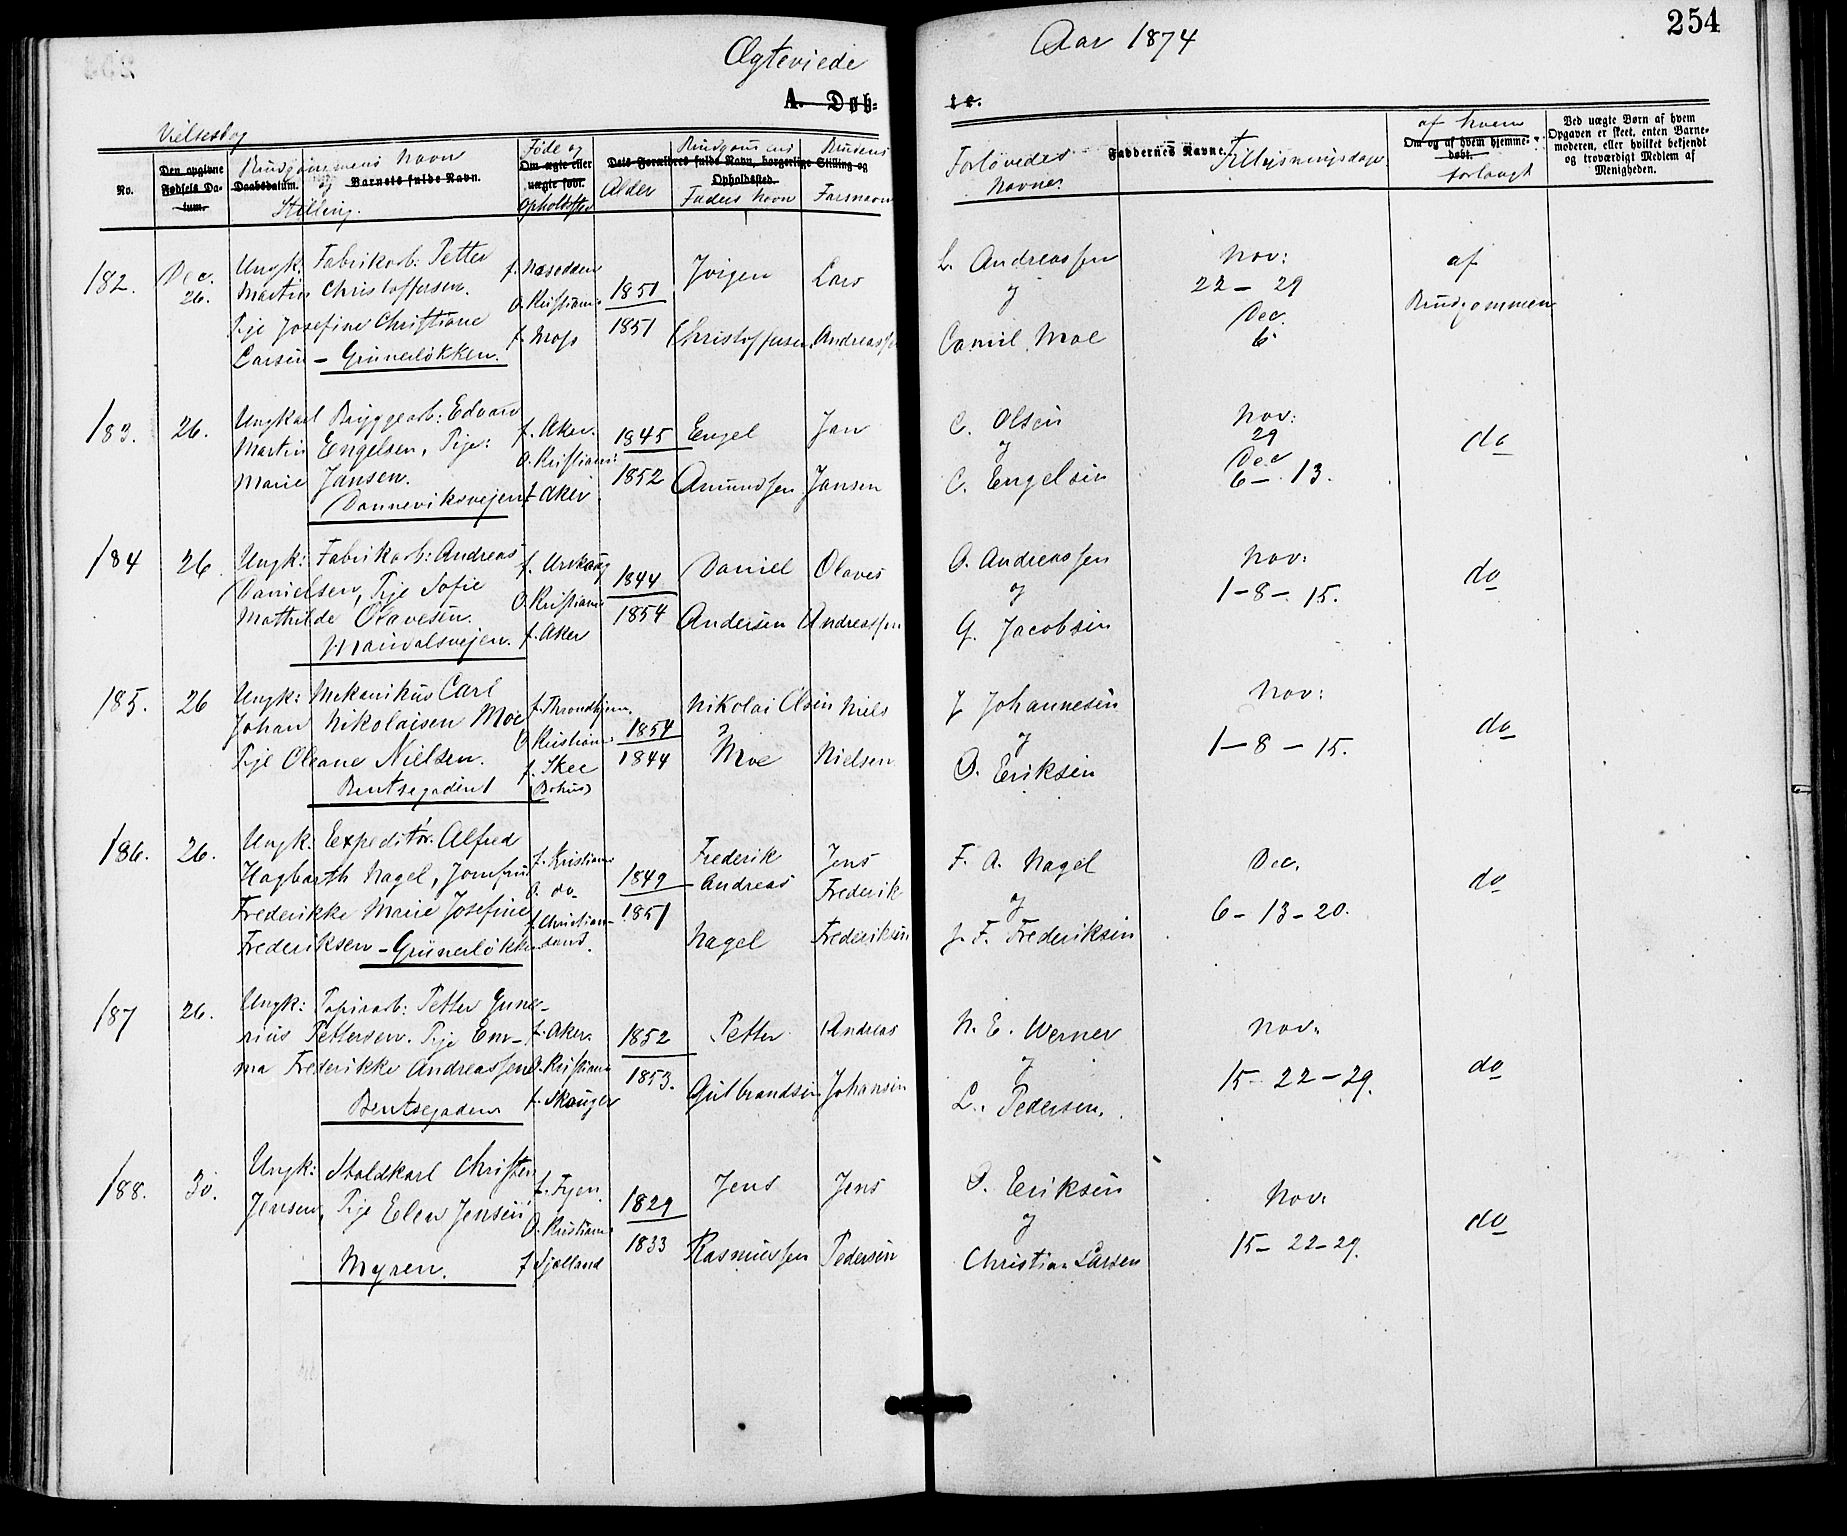 254
Ægteviede
Aar 1874
A. Døb-
te.
Vielsesdag
No.
Den opgivne
Fødsels Da-
tum.
Brudgommens Navn
og
Daabsdatum.
Barnets fulde Navn.
Stilling.
Føde og
Om ægte eller
uægte født.
Opholdssted
Alder
Dets Forældres fulde Navn, borgerlige Stilling og
Opholdssted.
Brudgommens
Faders Navn
Brudens
Farsnavn
Forlovedes
Navne
Faddernes Navne.
Tillysningsdage
af hvem
Om og af hvem hjemme-
døbt.
forlangt
Ved uægte Børn af hvem
Opgaven er skeet, enten Barne-
moderen, eller hvilket bekjendt
og troværdigt Medlem af
Menigheden.
182.
Dec.
26.
Ungk. Fabrikarb: Petter
Martin Christoffersen.
Pige Josefine Christiane
Larsen – Grünerløkken.
f. Næsodden
O. Kristiania
f. Moss
1851
1851
Jørgen
Christoffersen
Lars
Andreassen
L. Andreassen
&
Camil Moe
Nov:
22 – 29
Dec.
6
af
Brudgommen
183.
26.
Ungkarl Bryggearb: Edvard
Martin Engelsen, Pige:
Marie Jansen.
Danneviksvejen
f. Aker.
O. Kristiania
f. Aker
1845
1852
Engel
Amundsen
Jan
Jansen
C. Olsen
&
C. Engelsen
Nov:
29
Dec
6 – 13.
do
184
26.
Ungk: Fabrikarb: Andreas
Danielsen, Pige Sofie
Mathilde Olavesen.
Maridalsvejen.
f. Urskoug
O. Kristiania
f. Aker
1844
1854
Daniel
Andersen
Olaves
Andreassen
O. Andreassen
&
G. Jacobsen
Nov:
1 – 8 – 15.
do
185.
26
Ungk: Mekanikus Carl
Johan Nikolaisen Moe
Pige Oleane Nielsen.
Bentsegaden
f. Throndhjem.
O. Kristiania
f. Skee
(Bohus)
1854
1844
Nikolai Olsen
Moe
Niels
Nielsen
J Johannesen
&
O. Eriksen
Nov:
1 – 8 – 15.
do
186.
26.
Ungk: Expeditør. Alfred
Hagbarth Nagel, Jomfru
Frederikke Marie Josefine
Frederiksen – Grünerløkken
f. Kristiania
O. do
f. Christian-
sand.
1849
1851
Frederik
Andreas
Nagel
Jens
Frederik
Frederiksen
F. A. Nagel
&
J. F. Frederiksen
Dec.
6 – 13 – 20.
do
187
26.
Ungk: Papirarb: Petter Gune-
rius Pettersen. Pige Em-
ma Frederikke Andreassen
Bentsegaden
f. Aker.
O. Kristiania
f. Skouger
1852
1853.
Petter
Gulbrandsen
Andreas
Johansen
N. E. Werner
&
L. Pedersen.
Nov:
15 – 22 – 29.
do
188.
30.
Ungk: Staldkarl Christen
Jensen, Pige Elen Jensen
Myren.
f. Fyen
O. Kristiania
f Sjælland
1829
1833
Jens
Rasmussen
Jens
Pedersen
O. Eriksen
&
Christian Larsen
Nov:
15 – 22 – 29.
do